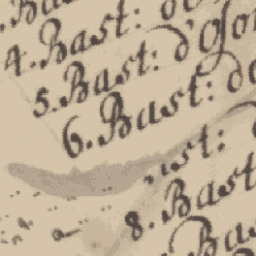 Bast:
4. Bast: do
5. Bast: d'Oso
6. Bast: do
ast:
8. Bast
Bas